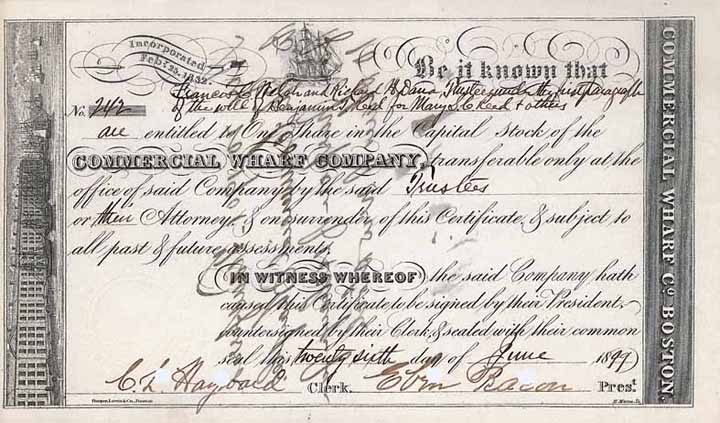 Incorporated
Feb.y 25. 1832.
Be it known that
Francis C. Welch and Richard H. Dana Trustees under the first paragraph
No. 242 of the will of Benjamin T. Reed for Mary L. C. Reed & others
are entitled to One Share in the Capital Stock of the
COMMERCIAL WHARF COMPANY, transferable only at the
office of said Company, by the said Trustees
or their Attorney, & on surrender of this Certificate, & subject to
all past & future assessments.
IN WITNESS WHEREOF, the said Company hath
caused this Certificate, to be signed by their President,
countersigned by their Clerk, & sealed with their common
seal this twenty sixth day of June 1899
C. L. Hayward Clerk. Eben Bacon Prest.
COMMERCIAL WHARF Co. BOSTON.